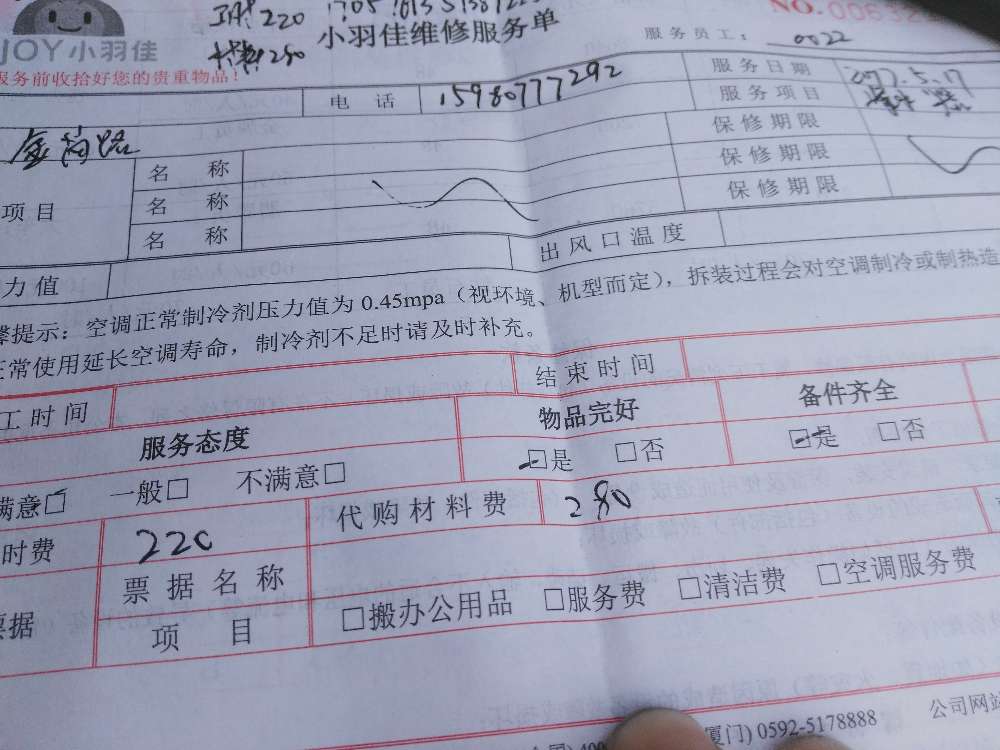 NO.
JOY小羽佳
小羽佳维修服务单
服务员工： 0022
服务前收拾好您的贵重物品！
电 话 15980777292
服务日期
服务项目
项目
名 称
名 称
名 称
保修期限
保修期限
保修期限
力值
出风口温度
提示：空调正常制冷剂压力值为 0.45mpa（视环境、机型而定），拆装过程会对空调制冷或制热造
正常使用延长空调寿命，制冷剂不足时请及时补充。
工时间
结束时间
服务态度
物品完好
备件齐全
满意☑ 一般□ 不满意□
☑是 □否
☑是 □否
时费 220
代购材料费 280
票据
票据名称
项 目
□搬办公用品 □服务费 □清洁费 □空调服务费
厦门) 0592-5178888
公司网站